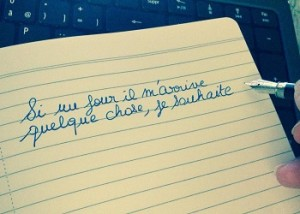 Si un jour il m'arrive
quelque chose, je souhaite